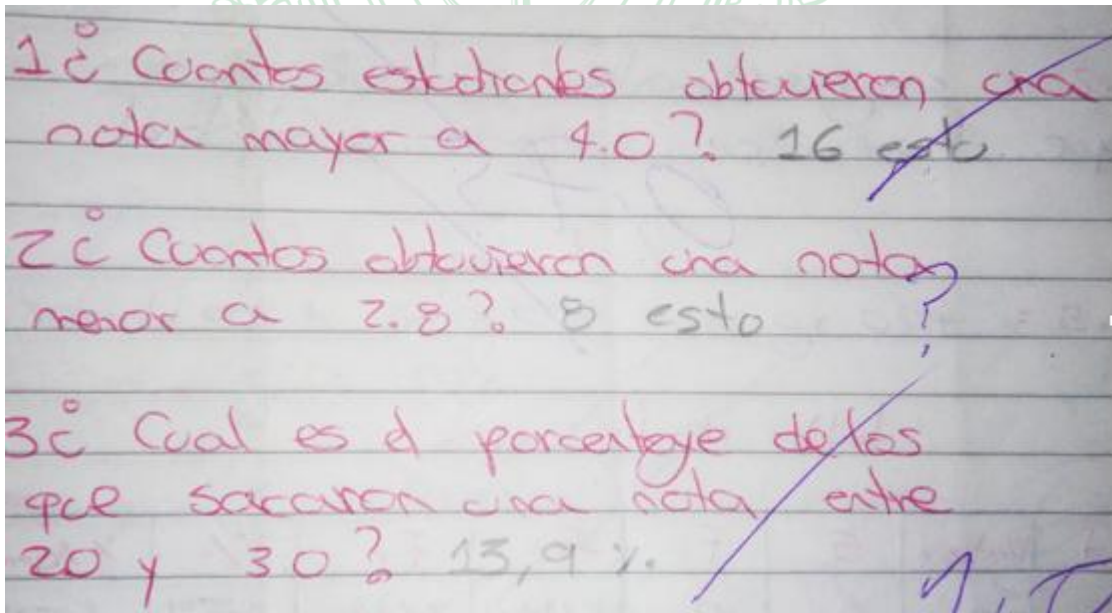 1¿ Cuantos estudiantes obtuvieron una
nota mayor a 4.0? 16 esto
2¿ Cuantos obtuvieron una nota
menor a 2.8? 8 esto
?
3¿ Cual es el porcentaje de los
que sacaron una nota entre
20 y 30? 13,9 %.